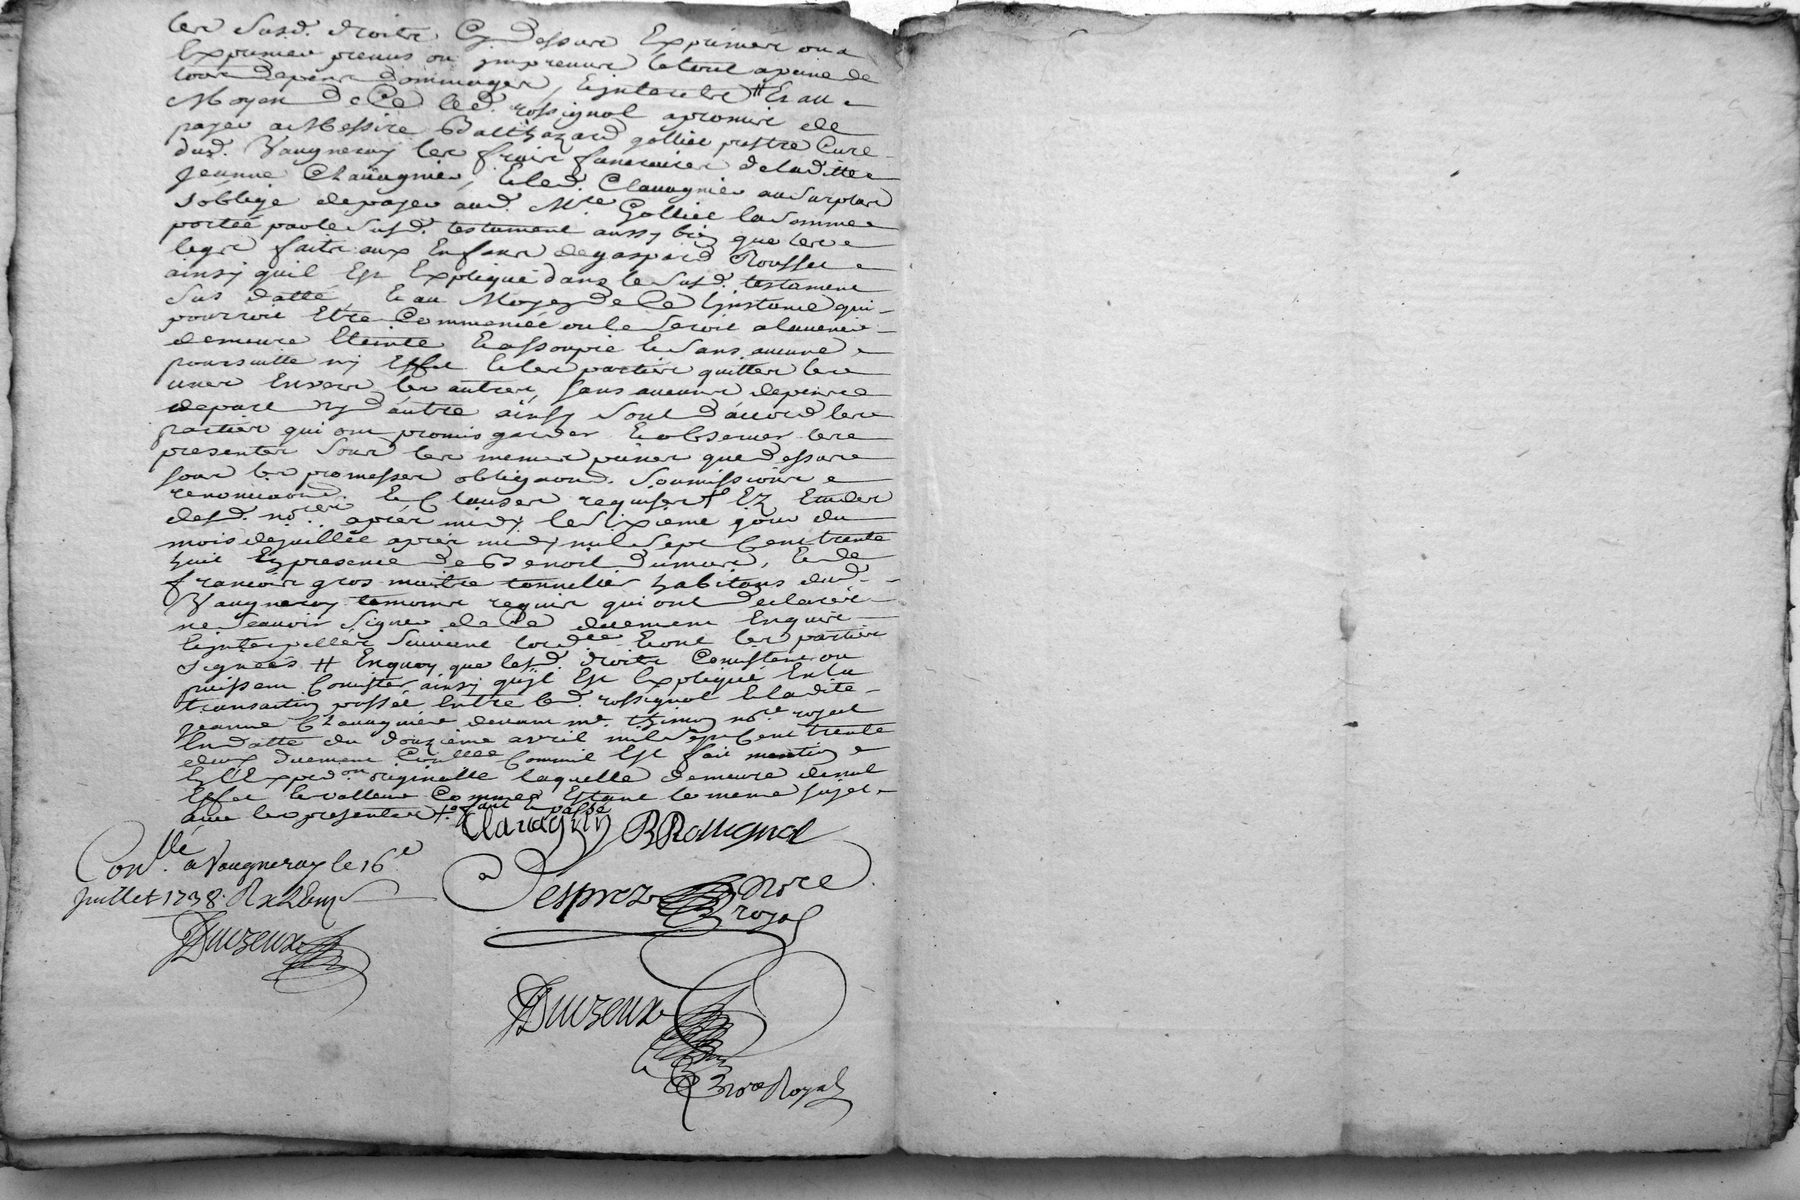 les susd. droits Cy dessus Exprimés ou a
Exprimer prevus ou impreveus le tout a peine de
tous depens dommages, Et interets # Et au
Moyen de Ce led. rossignol a promis de
payer a Messire Balthazard gollier prestre Curé
dud. Vaugneray les frais funeraires de laditte
Jeanne Chavagnier, Et led. Clavagnier au surplus
s'oblige de payer aud. Mre Gollier la somme
portée par le susd. testament aussy bien que les
legs faits aux Enfans de gaspard Rousset
ainsy quil Est Expliqué dans le susd. testament
sus datté, Et au Moyen de Ce l'instance qui
pourroit Etre Commencée ou le seroit a lavenir
demeure Eteinte Et assoupie Et sans aucune
poursuitte ny Effet Et les parties quittes les
unes Envers les autres, sans aucuns depens
de part ny d'autre ainsy sont d'accord les
parties qui ont promis garder Et observer les
presentes sous les memes peines que dessus
sous les promesses obligaons. soumissions
renonciaons. Et Clauses requises Ez Etudes
desd. nores après midy le sixieme jour du
mois de juillet après midy mil sept Cent trente
huit En presence de Benoit dumas, Et de
francois gros maitre tonnellier habitans dud.
Vaugneray temoins requis qui ont declaré
ne scavoir signer de Ce duement Enquis
Et interpellés suivant lordce Et ont les parties
signées # En quoy que lesd. droits Consistent ou
puissent Consister ainsy qu'il Est Expliqué En la
transaction passée Entre led. rossignol Et ladite
Jeanne Chavagnier devant me. thimon nore. royal
En datte du douzieme avril mil sept Cent trente
deux duement Conllée Comme il Est fait mention
En l'Expedon originalle laquelle demeure de nul
Effet Et valleur Comme Estant le meme sujet
que les presentes
Clavagnier BRossignol
Desprez nore royal
Conllé. a Vaugneray le 16e
Juillet 1738.